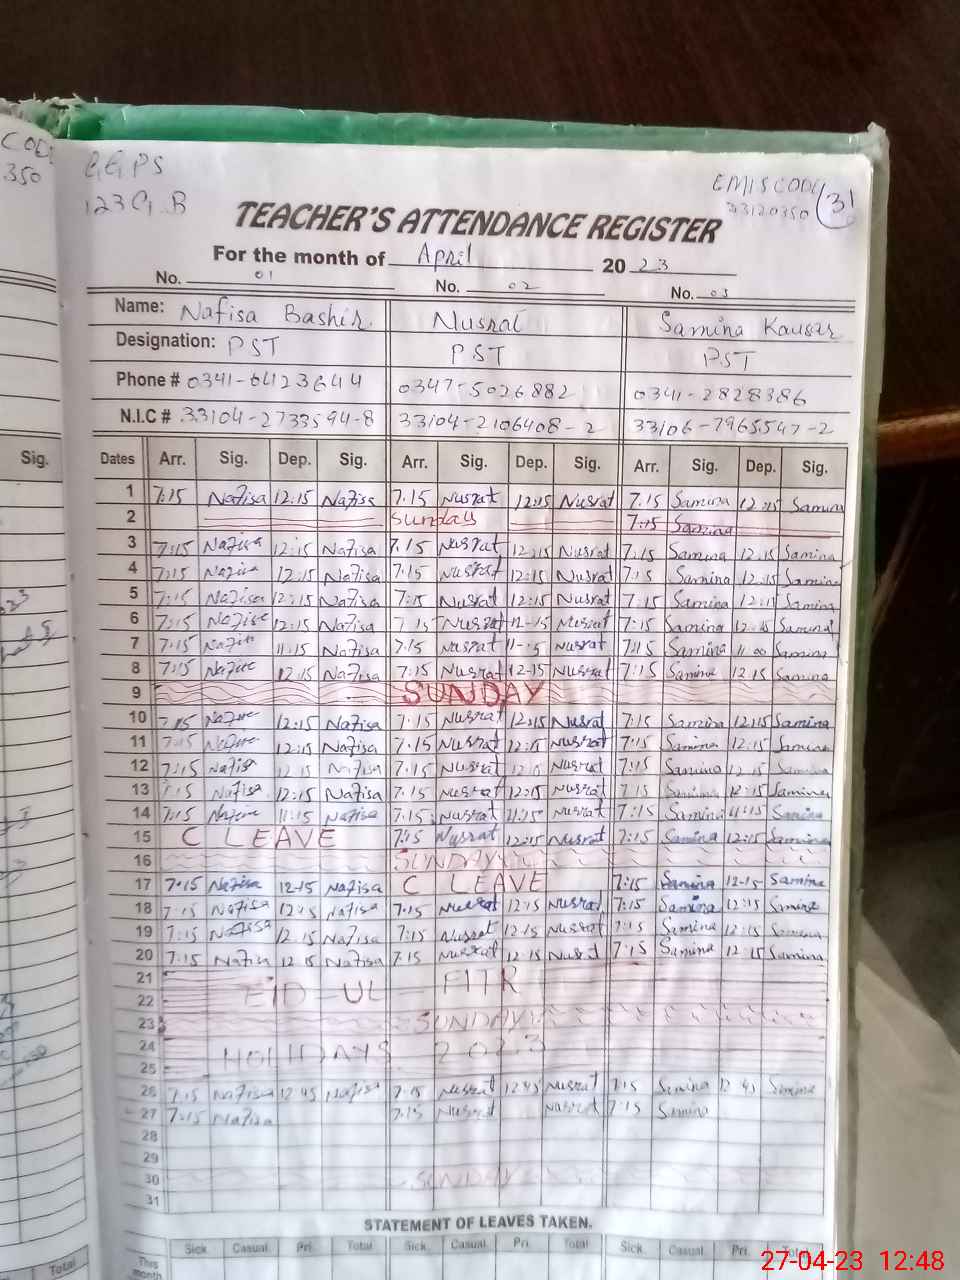 G.G.P.S
123 G.B
EMIS CODE
33120350
31
TEACHER'S ATTENDANCE REGISTER
For the month of April 2023
No. 01 No. 02 No. 03
Name: Nafisa Bashir Nusrat Samina Kausar
Designation: PST PST PST
Phone # 0341-6123644 0347-5026882 0341-2828386
N.I.C # 33104-2733594-8 33104-2106408-2 33106-7965547-2
Dates Arr. Sig. Dep. Sig. Arr. Sig. Dep. Sig. Arr. Sig. Dep. Sig.
1 7:15 Nafisa 12:15 Nafisa 7:15 Nusrat 12:15 Nusrat 7:15 Samina 12:15 Samina
2 Sunday 7:15 Samina
3 7:15 Nafisa 12:15 Nafisa 7:15 Nusrat 12:15 Nusrat 7:15 Samina 12:15 Samina
4 7:15 Nafisa 12:15 Nafisa 7:15 Nusrat 12:15 Nusrat 7:15 Samina 12:15 Samina
5 7:15 Nafisa 12:15 Nafisa 7:15 Nusrat 12:15 Nusrat 7:15 Samina 12:15 Samina
6 7:15 Nafisa 12:15 Nafisa 7:15 Nusrat Nusrat 7:15 Samina 12:15 Samina
7 7:15 Nafisa 11:15 Nafisa 7:15 Nusrat 11:15 Nusrat 7:15 Samina 11:00 Samina
8 7:15 Nafisa 12:15 Nafisa 7:15 Nusrat 12:15 Nusrat 7:15 Samina 12:15 Samina
9 SUNDAY
10 7:15 Nafisa 12:15 Nafisa 7:15 Nusrat 12:15 Nusrat 7:15 Samina 12:15 Samina
11 7:15 Nafisa 12:15 Nafisa 7:15 Nusrat 12:15 Nusrat 7:15 Samina 12:15 Samina
12 7:15 Nafisa 12:15 Nafisa 7:15 Nusrat 12:15 Nusrat 7:15 Samina 12:15 Samina
13 7:15 Nafisa 12:15 Nafisa 7:15 Nusrat 12:15 Nusrat 7:15 Samina 12:15 Samina
14 7:15 Nafisa 11:15 Nafisa 7:15 Nusrat 11:15 Nusrat 7:15 Samina 11:15 Samina
15 C LEAVE 7:15 Nusrat 12:15 Nusrat 7:15 Samina 12:15 Samina
16 SUNDAY
17 7:15 Nafisa 12:15 Nafisa C LEAVE 7:15 Samina 12:15 Samina
18 7:15 Nafisa 12:15 Nafisa 7:15 Nusrat 12:15 Nusrat 7:15 Samina 12:15 Samina
19 7:15 Nafisa 12:15 Nafisa 7:15 Nusrat 12:15 Nusrat 7:15 Samina 12:15 Samina
20 7:15 Nafisa 12:15 Nafisa 7:15 Nusrat 12:15 Nusrat 7:15 Samina 12:15 Samina
21
EID-UL-FITR
22
23 SUNDAY
24
HOLIDAYS 2023
25
26 7:15 Nafisa 12:45 Nafisa 7:15 Nusrat 12:45 Nusrat 7:15 Samina 12:45 Samina
27 7:15 Nafisa 7:15 Nusrat Nusrat 7:15 Samina
28
29
30 SUNDAY
31
STATEMENT OF LEAVES TAKEN.
Sick. Casual. Pri. Total Sick. Casual. Pri. Total Sick. Casual. Pri. Total
This month
27-04-23 12:48
CODE
350
Sig.
Total